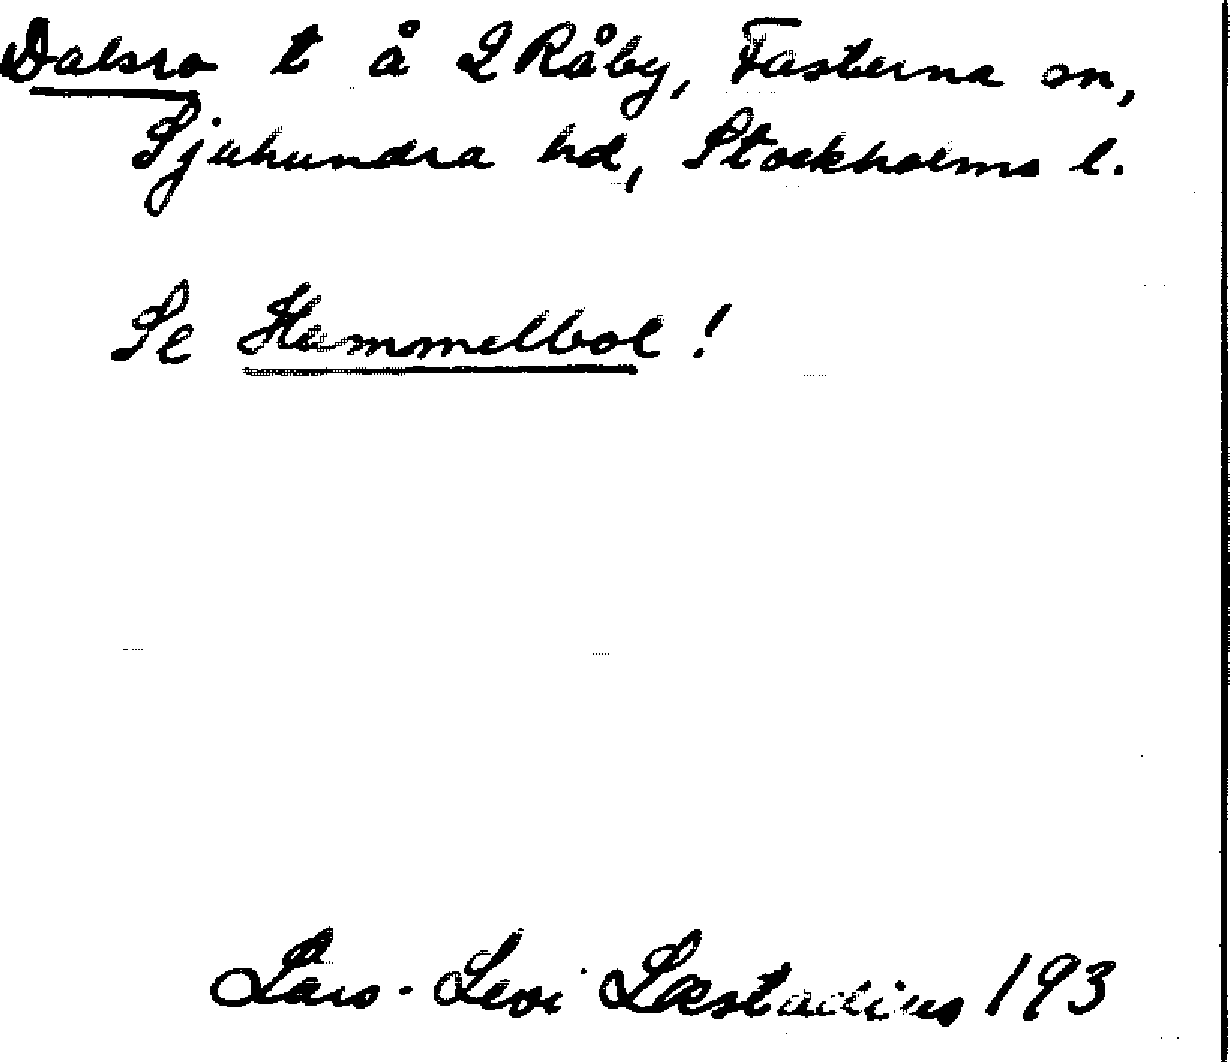 Dalsro t å 2 Råby, Fasterna sn,
Sjuhundra hd, Stockholms l.
Se Hammelbol!
Lars-Levi Læstadius 193